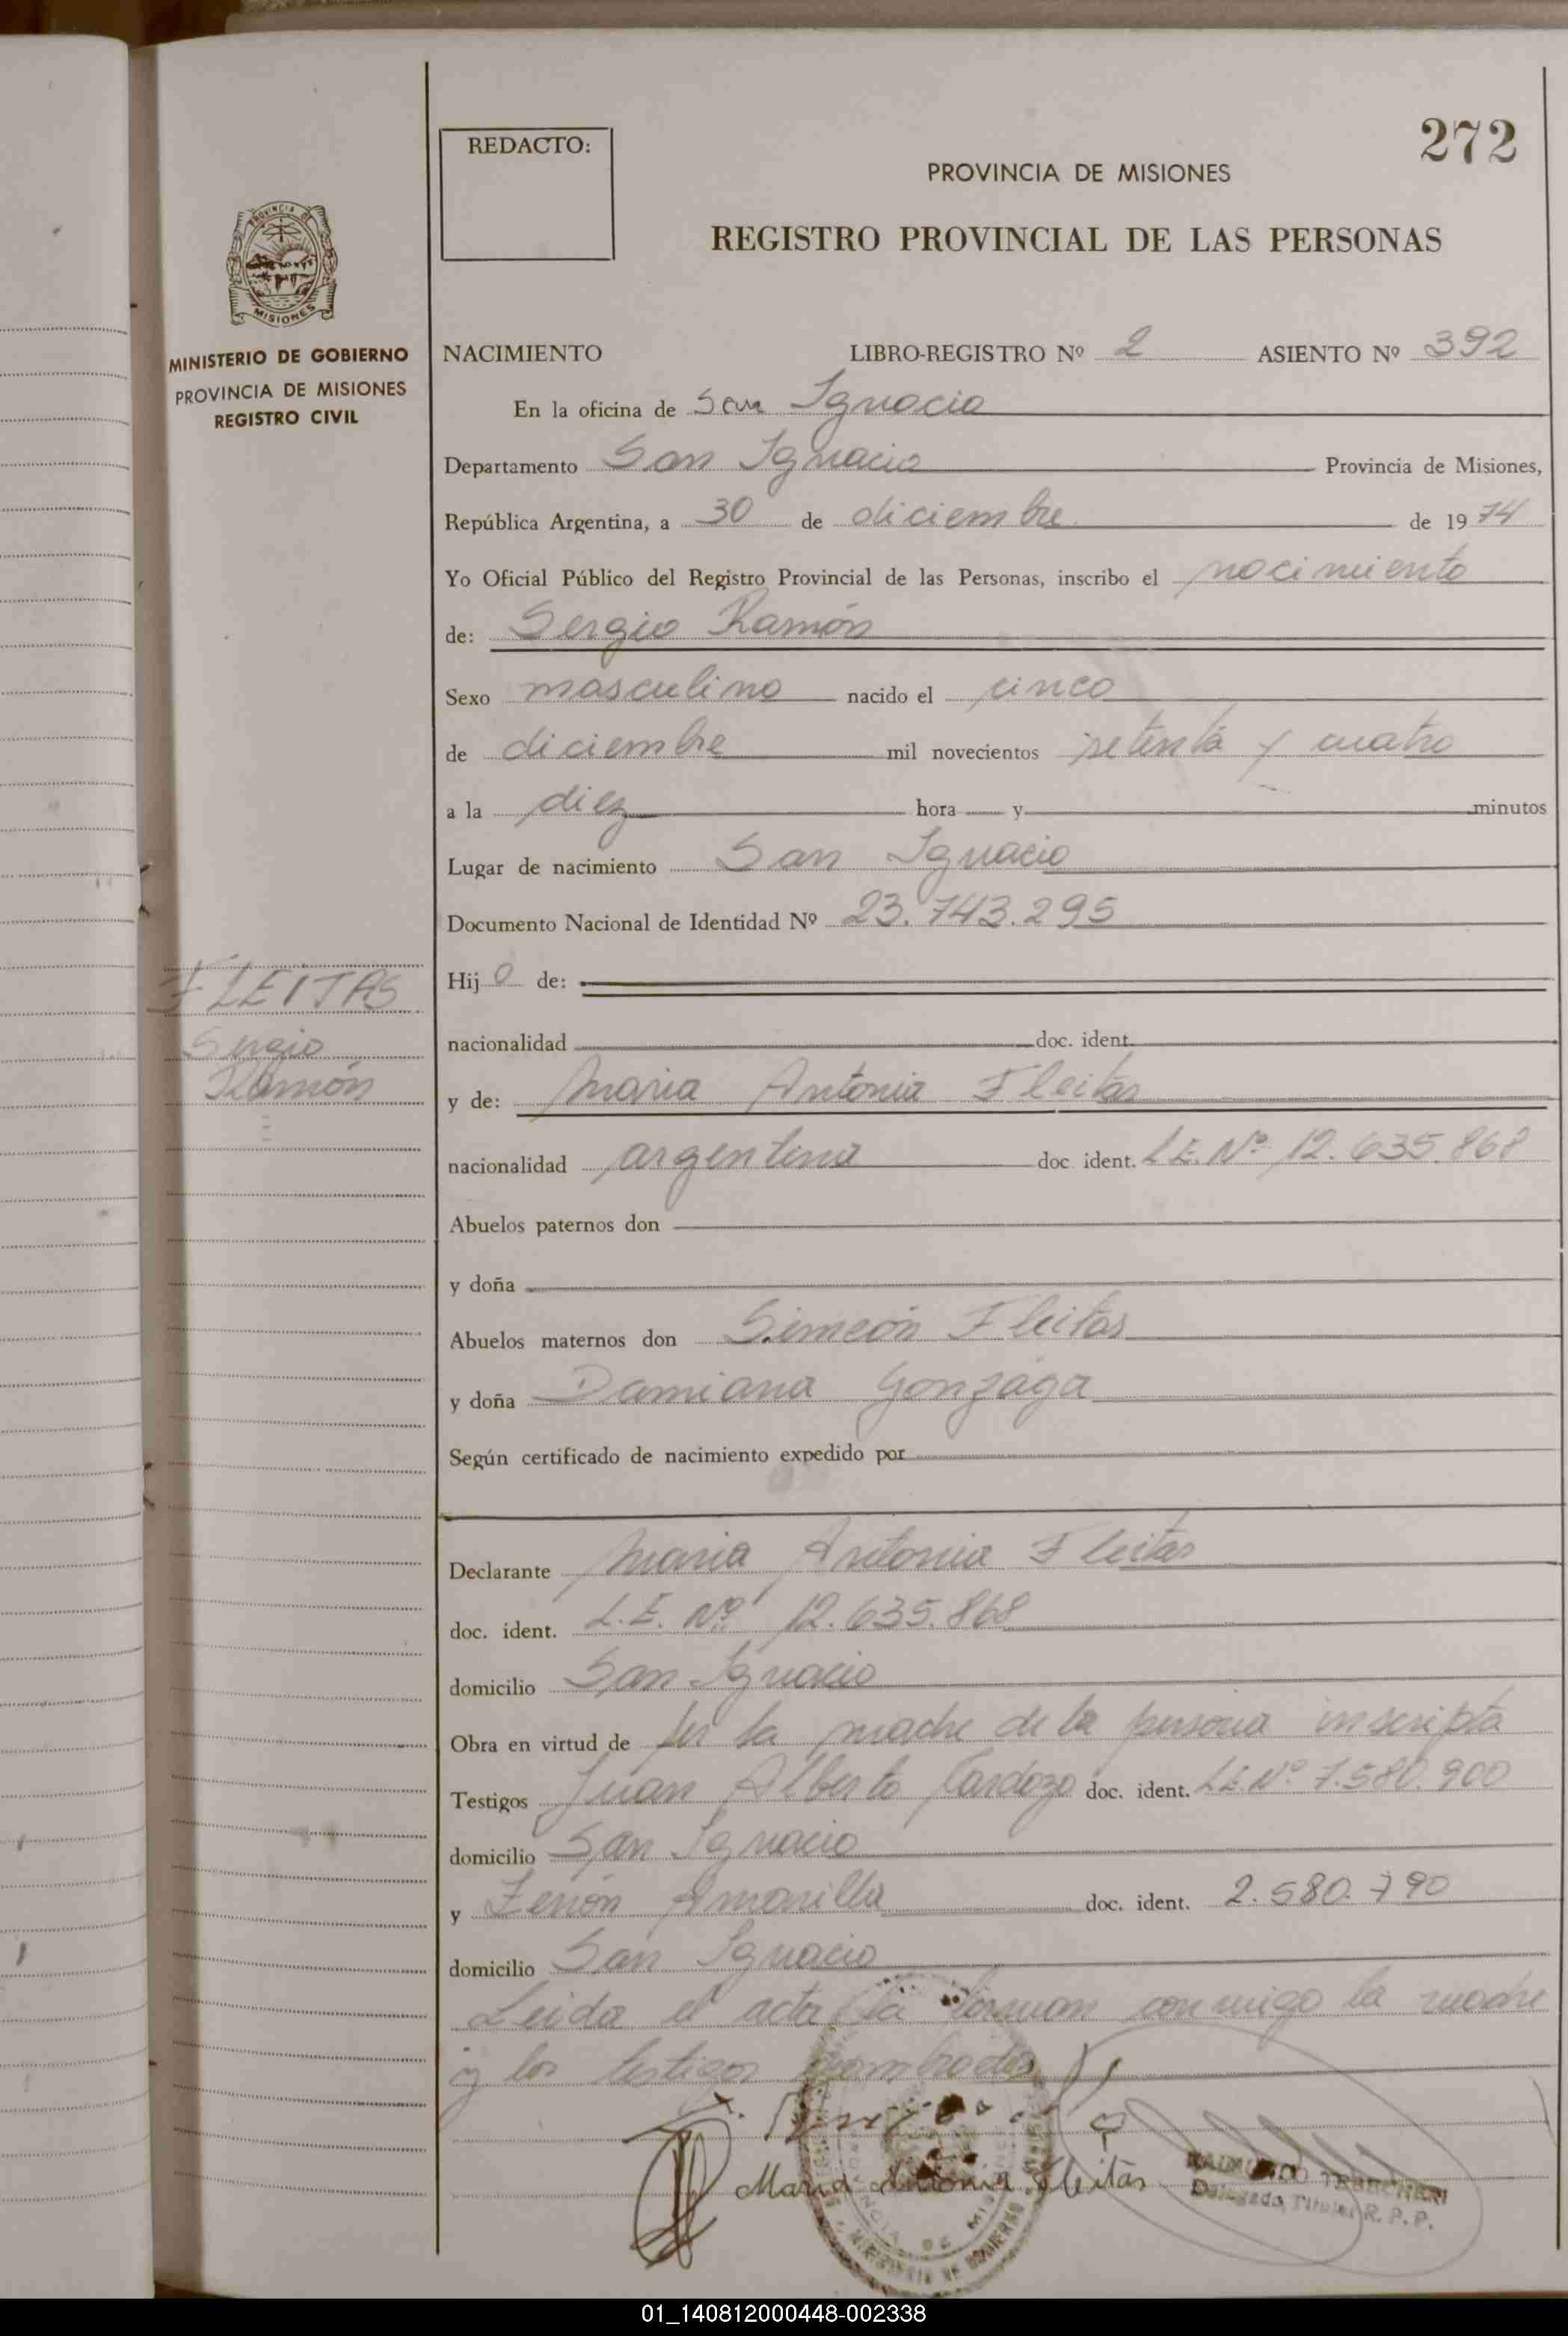 272
REDACTO:
PROVINCIA DE MISIONES
REGISTRO PROVINCIAL DE LAS PERSONAS
PROVINCIA DE
MISIONES
MINISTERIO DE GOBIERNO
PROVINCIA DE MISIONES
REGISTRO CIVIL
NACIMIENTO LIBRO-REGISTRO Nº 2 ASIENTO Nº 392
En la oficina de San Ignacio
Departamento San Ignacio Provincia de Misiones,
República Argentina, a 30 de diciembre de 1974
Yo Oficial Público del Registro Provincial de las Personas, inscribo el nacimiento
de: Sergio Ramón
Sexo masculino nacido el cinco
de diciembre mil novecientos setenta y cuatro
a la diez hora y minutos
Lugar de nacimiento San Ignacio
Documento Nacional de Identidad Nº 23.743.295
FLEITAS
Sergio
Ramón
Hijo de:
nacionalidad doc. ident.
y de: Maria Antonia Fleitas
nacionalidad argentina doc ident. L.E. Nº 12.635.868
Abuelos paternos don
y doña
Abuelos maternos don Simeón Fleitas
y doña Damiana Gonzaga
Según certificado de nacimiento expedido por
Declarante Maria Antonia Fleitas
doc. ident. L.E. Nº 12.635.868
domicilio San Ignacio
Obra en virtud de ser la madre de la persona inscripta
Testigos Juan Alberto Cardozo doc. ident. L.E. Nº 7.580.900
domicilio San Ignacio
y Zenón Amarilla doc. ident. 2.580.790
domicilio San Ignacio
Leida el acta la firman conmigo la madre
y los testigos nombrados
Maria Antonia Fleitas
Delegado Titular R. P. P.
MINISTERIO DE GOBIERNO
01_140812000448-002338